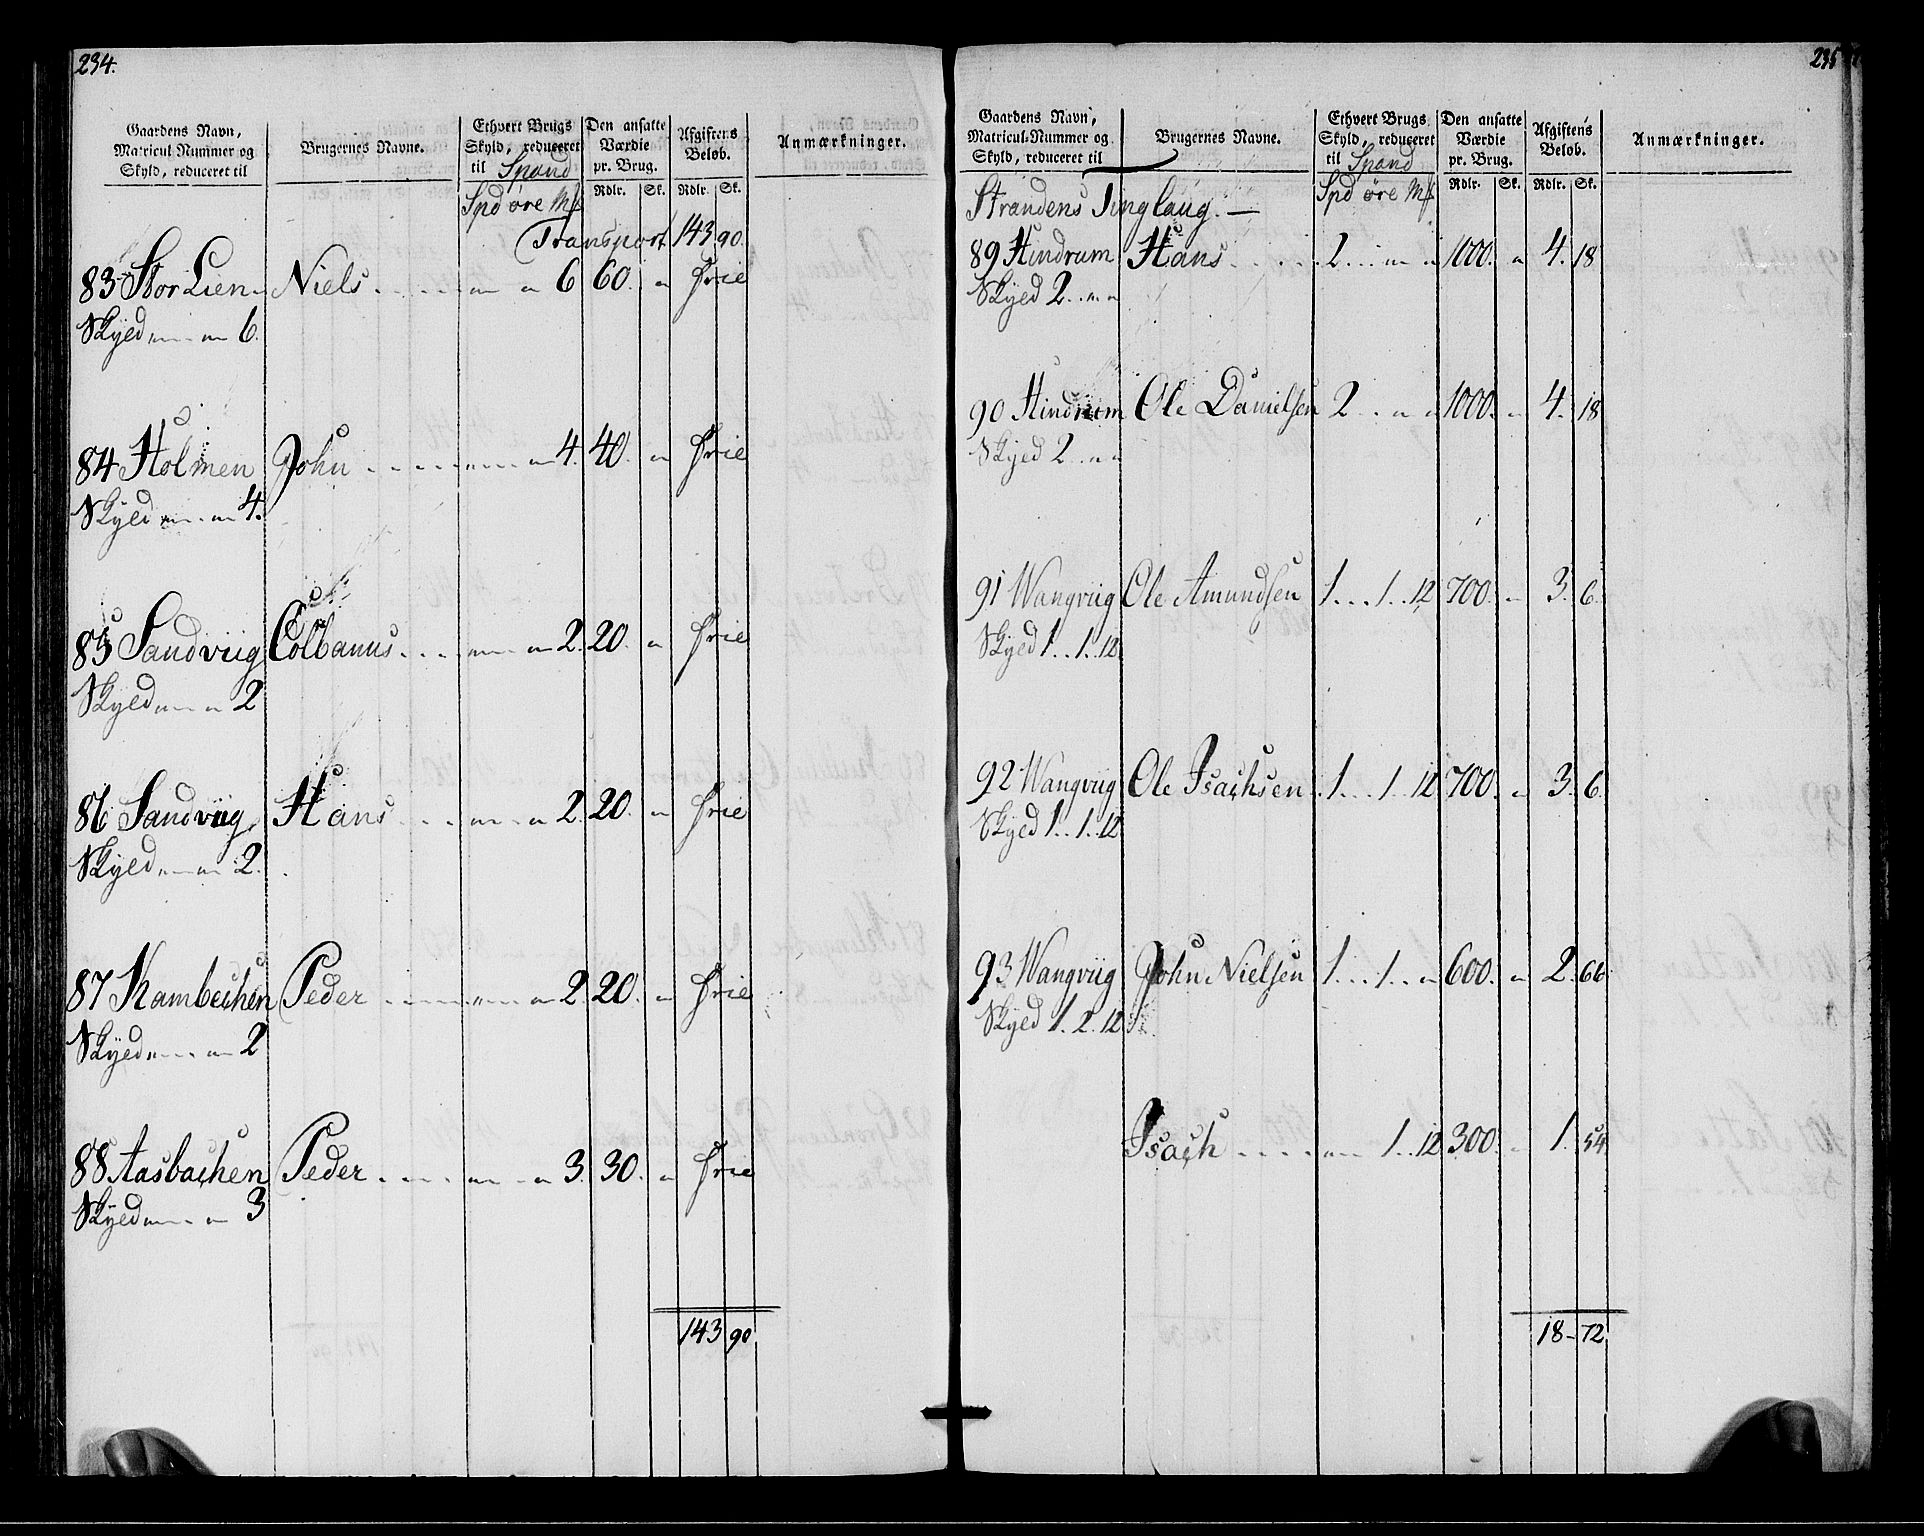 234.
Gaardens Navn, Matricul Nummer og Skyld, reduceret til | Brugernes Navne. | Ethvert Brugs Skyld, reduceret til Spand | Den ansatte Værdie pr. Brug. | Afgiftens Beløb. | Anmærkninger.
Spd øre Mk | Rdlr. | Sk. | Rdlr. | Sk.
Transport 143 90.
83 Stor Lien Niels . . . . . „ „ 6 60. „ frie
Skyld „ „ 6.
84 Holmen John . . . . „ „ 4. 40. „ frie
Skyld „ „ 4.
85 Sandviig Colbanus . . . „ „ 2. 20. „ frie
Skyld „ „ 2
86 Sandviig Hans . . . „ „ 2. 20. „ frie
Skyld „ „ 2.
87 Kambechen Peder . . . . „ „ 2. 20. „ frie
Skyld „ „ 2
88 Aasbachen Peder . . . . „ „ 3. 30. „ frie
Skyld „ „ 3
143 90
235
Gaardens Navn, Matricul-Nummer og Skyld, reduceret til | Brugernes Navne. | Ethvert Brugs Skyld, reduceret til Spand | Den ansatte Værdie pr. Brug. | Afgiftens Beløb. | Anmærkninger.
Spd øre Mk | Rdlr. | Sk. | Rdlr. | Sk.
Strandens Tinglaug. —
89 Hindrum Hans . . . . . 2 . . „ „ 1000. „ 4. 18
Skyld 2 . „ „
90 Hindrum Ole Danielsen 2 . . „ „ 1000. „ 4. 18
Skyld 2 . „ „
91 Wangviig Ole Amundsen 1 . . . 1 . . 12 700. „ 3. 6.
Skyld 1 . . 1 . 12
92 Wangviig Ole Isachsen . 1 . . . 1 . . 12 700. „ 3. 6.
Skyld 1 . . 1 . . 12
93 Wangviig John Nielsen 1 . . . 1 . . „ 600. „ 2. 66
Skyld 1 . 2 . 12
Isach . . . . „ 1 . . 12 300. „ 1. 54
18 - 72.